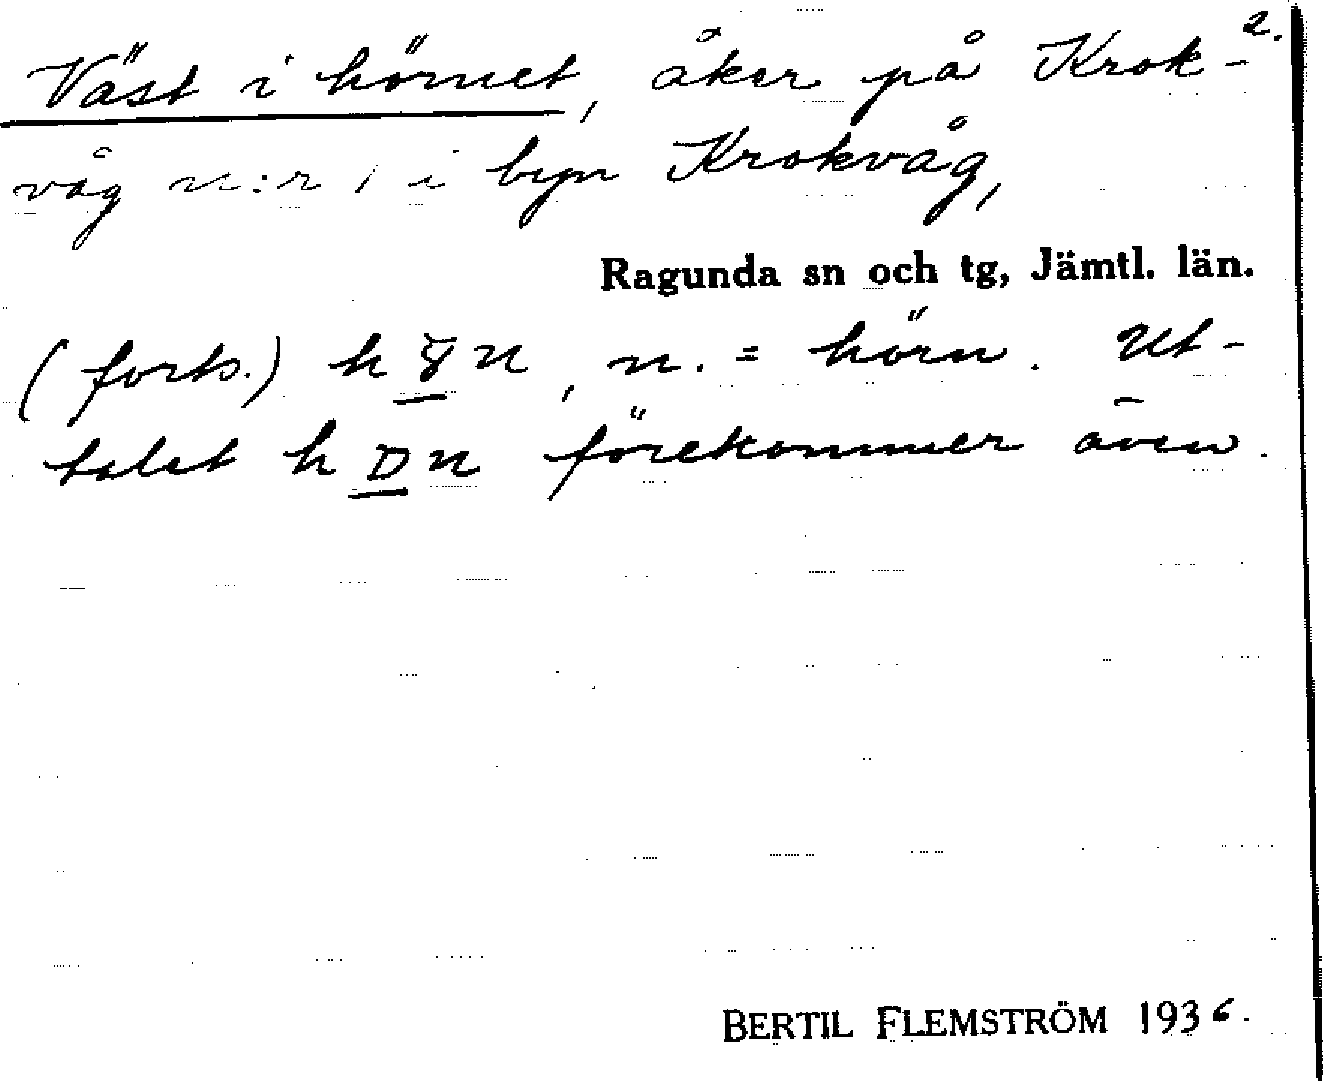 2.
Väst i hörnet, åker på Krok-
våg n:r 1 i byn Krokvåg,
Ragunda sn och tg, Jämtl. län.
(forts.) n. = hörn. Ut-
talet förekommer även.
BERTIL FLEMSTRÖM 1936.